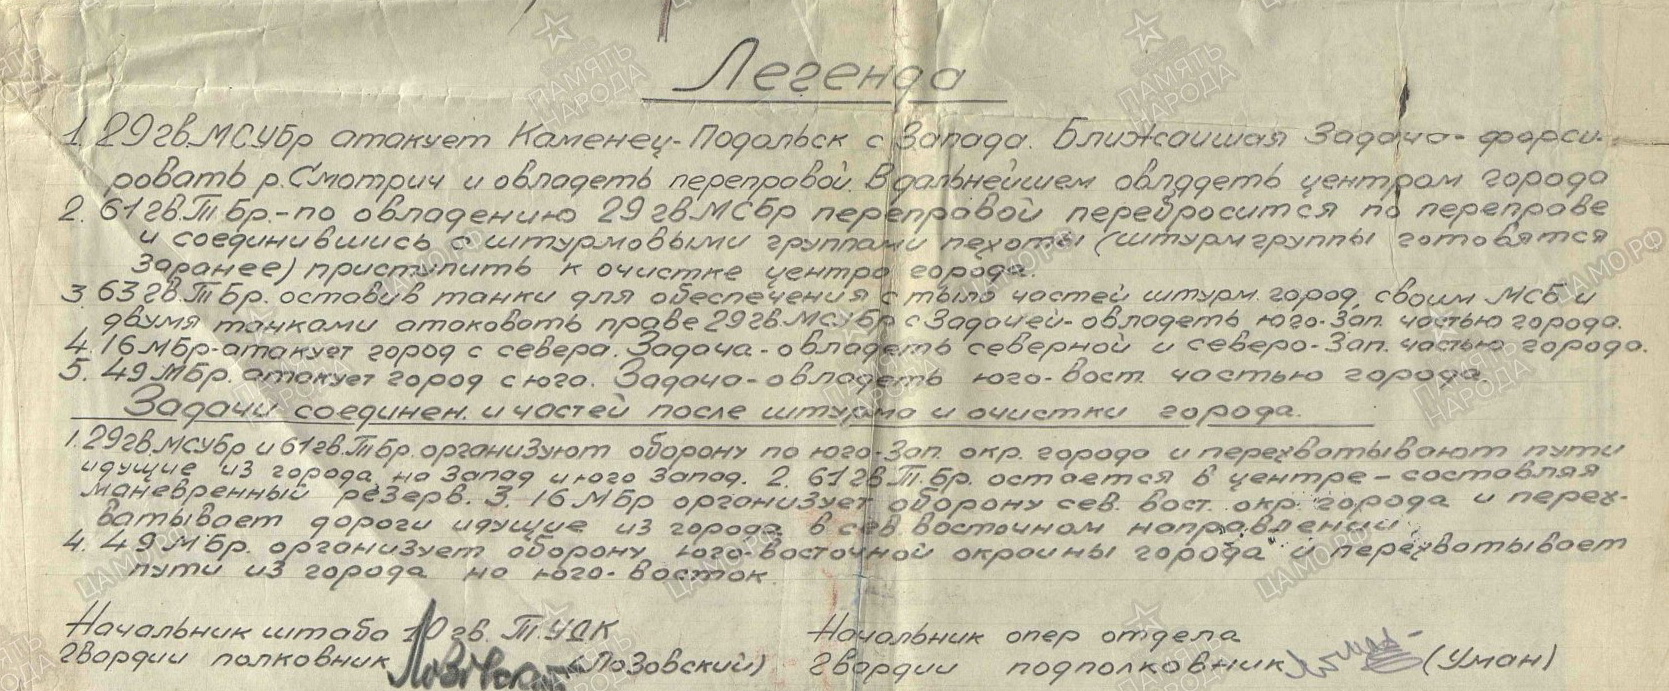 Легенда
1. 29 гв. МСУБр атакует Каменец-Подольск с Запада. Ближайшая Задача - форси-
ровать р. Смотрич и овладеть переправой. В дальнейшем овладеть центром города
2. 61 гв. Т.Бр. - по овладению 29 гв. МСБр переправой перебросится по переправе
и соединившись с штурмовыми группами пехоты (штурмгруппы готовятся
Заранее) приступить к очистке центра города.
3. 63 гв. ТБр. оставив танки для обеспечения с тыла частей штурм. город, своим МСБ и
двумя танками атаковать праве 29 гв. МСУБр с Задачей - овладеть юго-Зап. частью города.
4. 16 МБр - атакует город с севера. Задача - овладеть северной и северо-Зап. частью города.
5. 49 МБр. атакует город с юга. Задача - овладеть юго-вост. частью города.
Задачи соединен. и частей после штурма и очистки города.
1. 29 гв. МСУБр и 61 гв. ТБр. организуют оборону по юго-Зап. окр. города и перехватывают пути
идущие из города на Запад и юго Запад. 2. 61 гв. Т.Бр. остается в центре - составляя
маневренный резерв. 3. 16 МБр организует оборону сев. вост. окр. города и перех-
ватывает дороги идущие из города в сев. восточном направлении.
4. 49 МБр. организует оборону юго-восточной окраины города и перехватывает
пути из города на юго-восток.
Начальник штаба 10 гв. Т.УДК
гвардии полковник Лозовский (Лозовский)
Начальник опер отдела
гвардии подполковник (Уман)
ПАМЯТЬ НАРОДА
ЦАМО.РФ